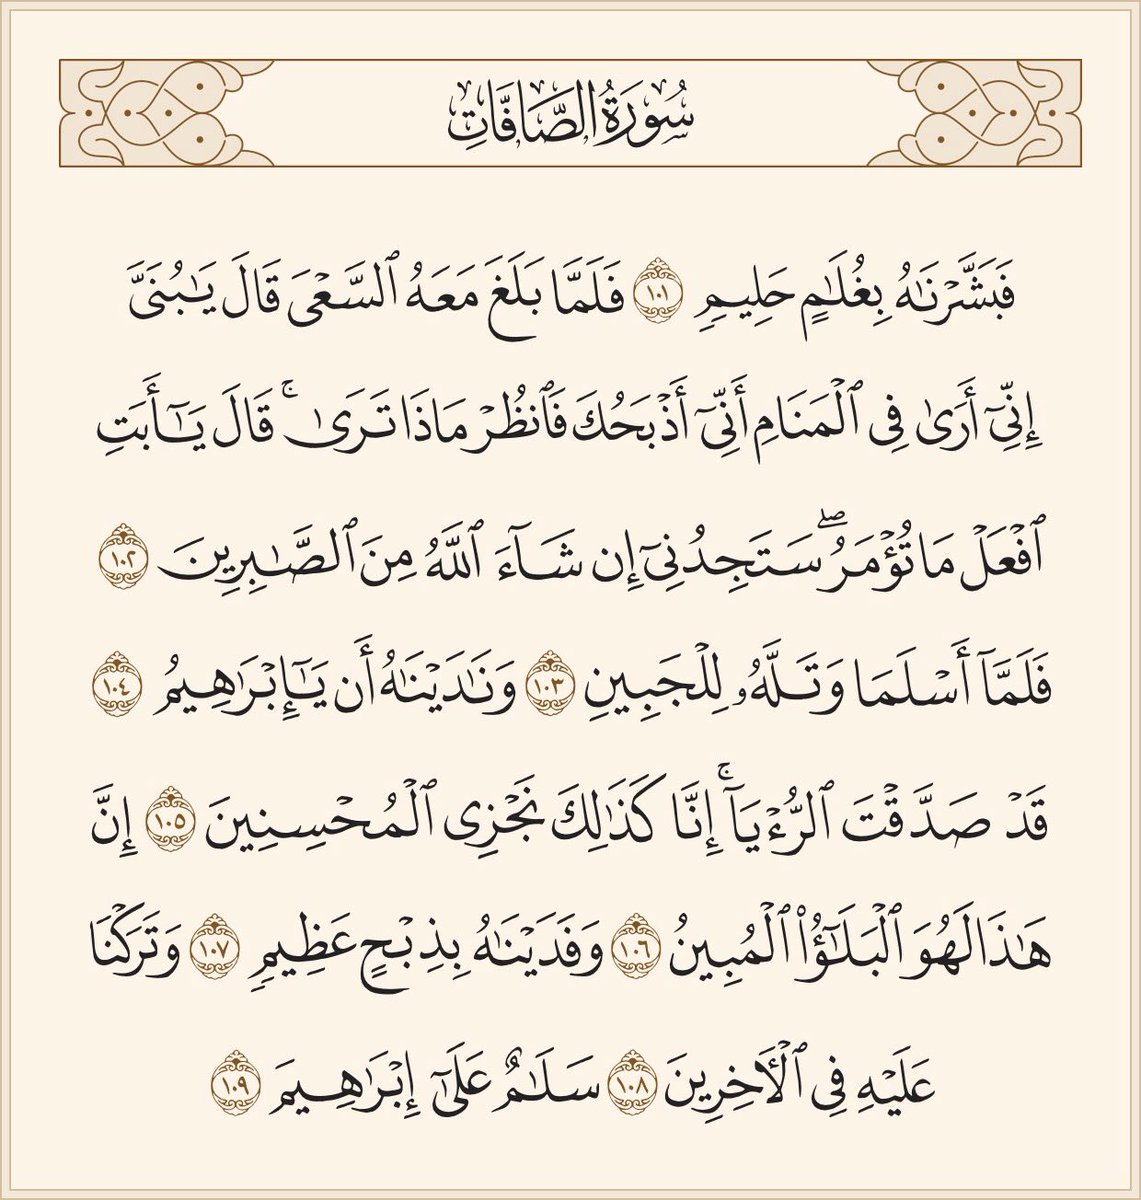 سُورَةُ الصَّافَّاتِ
فَبَشَّرْنَٰهُ بِغُلَٰمٍ حَلِيمٍ ١٠١ فَلَمَّا بَلَغَ مَعَهُ ٱلسَّعْىَ قَالَ يَٰبُنَىَّ
إِنِّىٓ أَرَىٰ فِى ٱلْمَنَامِ أَنِّىٓ أَذْبَحُكَ فَٱنظُرْ مَاذَا تَرَىٰ ۚ قَالَ يَٰٓأَبَتِ
ٱفْعَلْ مَا تُؤْمَرُ ۖ سَتَجِدُنِىٓ إِن شَآءَ ٱللَّهُ مِنَ ٱلصَّٰبِرِينَ ١٠٢
فَلَمَّآ أَسْلَمَا وَتَلَّهُۥ لِلْجَبِينِ ١٠٣ وَنَٰدَيْنَٰهُ أَن يَٰٓإِبْرَٰهِيمُ ١٠٤
قَدْ صَدَّقْتَ ٱلرُّءْيَآ ۚ إِنَّا كَذَٰلِكَ نَجْزِى ٱلْمُحْسِنِينَ ١٠٥ إِنَّ
هَٰذَا لَهُوَ ٱلْبَلَٰٓؤُا۟ ٱلْمُبِينُ ١٠٦ وَفَدَيْنَٰهُ بِذِبْحٍ عَظِيمٍ ١٠٧ وَتَرَكْنَا
عَلَيْهِ فِى ٱلْءَاخِرِينَ ١٠٨ سَلَٰمٌ عَلَىٰٓ إِبْرَٰهِيمَ ١٠٩